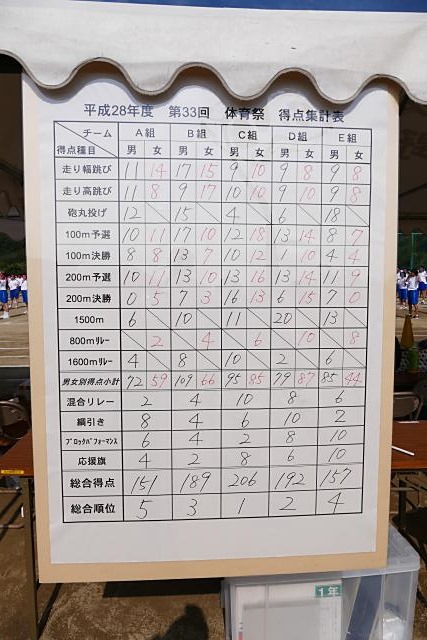 平成28年度 第33回 体育祭 得点集計表
チーム A組 B組 C組 D組 E組
得点種目 男 女 男 女 男 女 男 女 男 女
走り幅跳び 11 14 17 15 9 10 9 8 9 8
走り高跳び 11 8 9 17 10 10 9 10 9 8
砲丸投げ 12 15 4 6 18
100m予選 10 11 17 10 12 18 13 14 8 7
100m決勝 8 8 13 7 10 12 1 10 4 4
200m予選 10 11 13 10 13 16 13 14 11 9
200m決勝 0 5 7 3 16 13 6 15 7 0
1500m 6 10 11 20 13
800mリレー 2 4 6 10 8
1600mリレー 4 8 10 2 6
男女別得点小計 72 59 109 66 95 85 79 87 85 44
混合リレー 2 4 10 8 6
綱引き 8 4 6 10 2
ブロックパフォーマンス 6 4 2 8 10
応援旗 4 2 8 6 10
総合得点 151 189 206 192 157
総合順位 5 3 1 2 4
1年